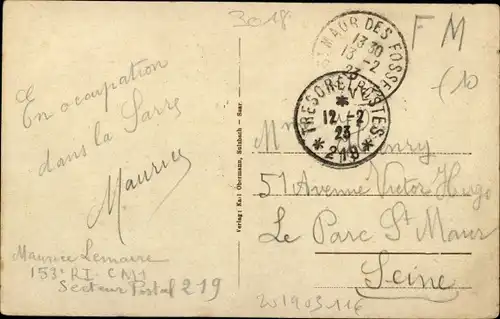 3018
F M
En occupation
dans la Sarre
Maurice
Maurice Lemaire
153e RI. CM1
Secteur Postal 219
Verlag: Karl Obermann, Sulzbach - Saar.
MAUR DES FOSSES
13 30
13 -2
23
TRESOR ET POSTES
12 -2
23
* 219 *
Mme Henry
51 Avenue Victor Hugo
Le Parc St Maur
Seine